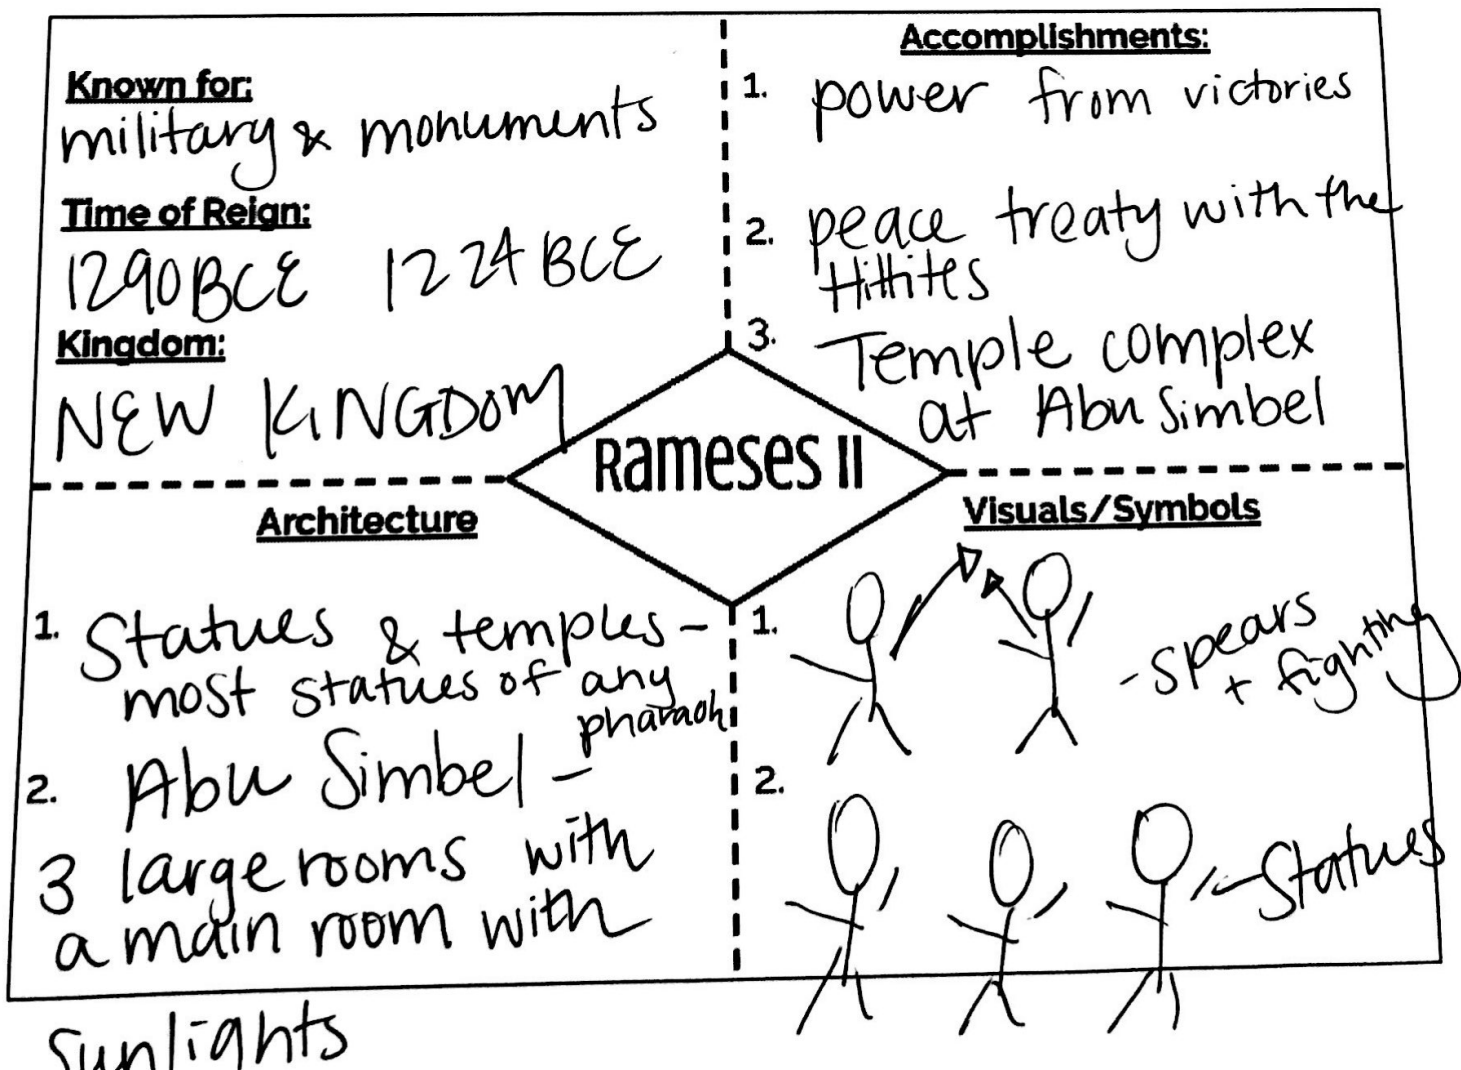 Known for:
military & monuments
Time of Reign:
1290 BCE 1224 BCE
Kingdom:
NEW KINGDOM
Accomplishments:
1. power from victories
2. peace treaty with the
Hittites
3. Temple complex
at Abu Simbel
Rameses II
Architecture
1. Statues & temples -
most statues of any
pharaoh
2. Abu Simbel -
3 large rooms with
a main room with
sunlights
Visuals/Symbols
1.
- spears
+ fighting
2.
- Statues